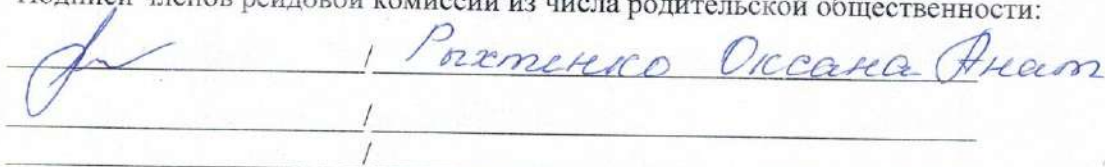 Подписи членов рейдовой комиссии из числа родительской общественности:
/ Рыхтенко Оксана Анат
/
/